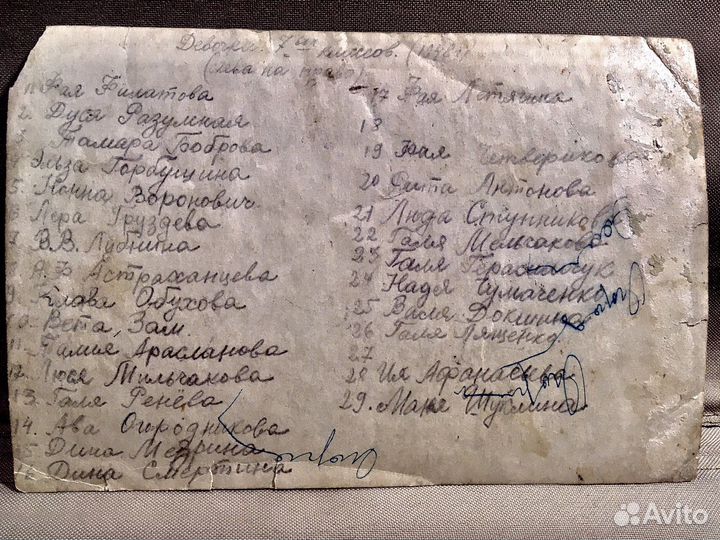 Девочки 7ых классов.
(слева на право)
1. Фая Филатова
2. Дуся Разумная
3 Тамара Боброва
4 Элиза Горбушина
5. Нонна Воронович
6 Лера Груздева
7. В.В. Лубнина
8 А. Ф Астраханцева
9. Клава Обухова
10. Вета Зам.
11. Галия Арасланова
12. Люся Мильчакова
13. Галя Ренёва
14. Ава Огородникова
15 Дина Медрина
16 Дина Смертина
17 Фая Летягина
18
19 Фая Четверикова
20 Фита Антонова
21 Люда Ступникова
22 Галя Мельчакова
23 Галя Герасимчук
24 Надя Чумаченко
25 Валя Докшина
26 Галя Лященко
27
28 Ия Афанасьева
29. Маня Шуплина
Avito